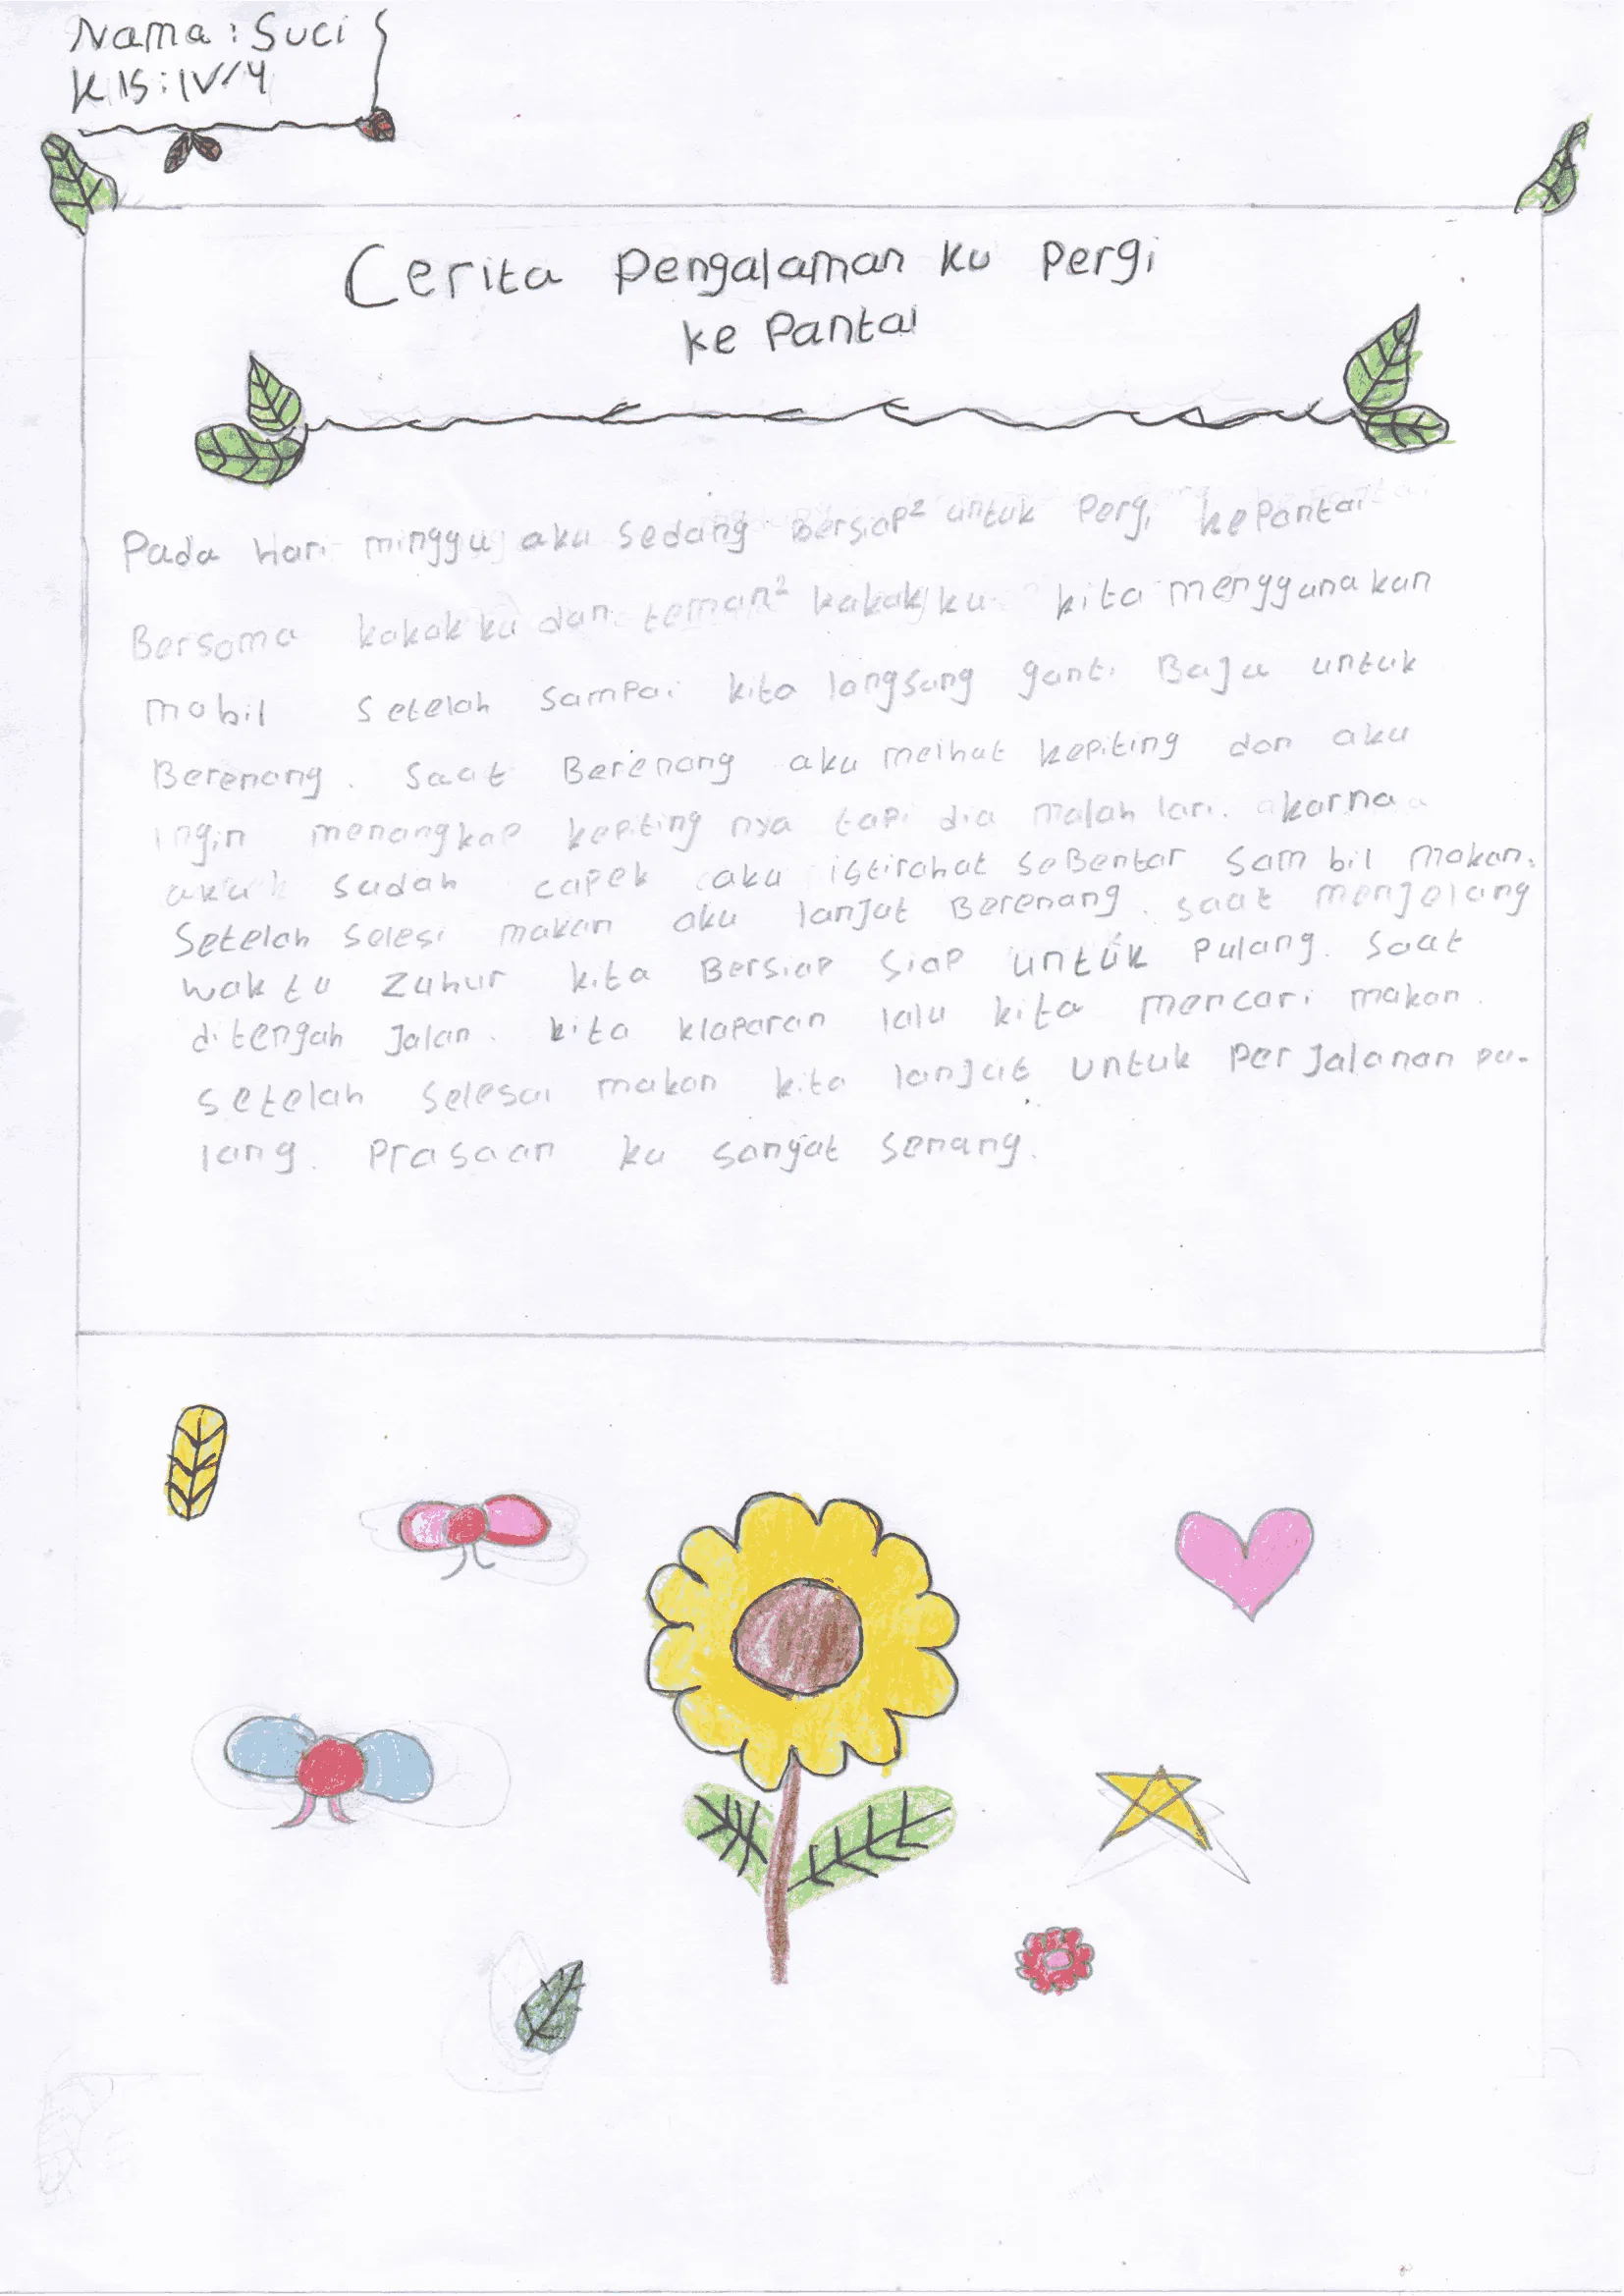 Nama : Suci
Kls : IV/4
Cerita Pengalaman ku Pergi
ke Pantai
Pada Hari minggu aku sedang Bersiap² untuk Pergi kePantai
Bersama kakak ku dan teman² kakakku kita menggunakan
mobil setelah sampai kita langsung ganti Baju untuk
Berenang. saat Berenang aku melihat kepiting dan aku
Ingin menangkap kepiting nya tapi dia malah lari. karna
aku sudah capek aku istirahat seBentar Sam bil makan.
Setelah selesi makan aku lanjut Berenang. saat menjelang
waktu Zuhur kita Bersiap siap untuk Pulang. Saat
ditengah Jalan. kita klaparan lalu kita mencari makan.
setelah selesai makan kita lanjut untuk Per Jalanan pu-
lang. Prasaan ku sangat senang.